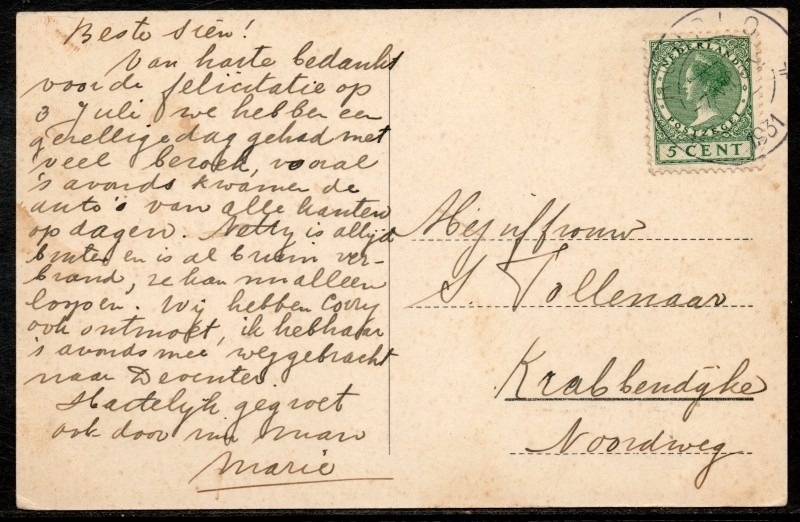 Beste Sien!
Van harte bedankt
voor de felicitatie op
3 Juli we hebben een
gezellige dag gehad met
veel bezoek, vooral
's avonds kwamen de
auto's van alle kanten
op dagen. Netty is altijd
buiten en is al bruin ver-
brand, ze kan nu alleen
loopen. Wij hebben Corry
ook ontmoet, ik heb haar
's avonds mee weggebracht
naar Deventer.
Hartelijk gegroet
ook door mijn man
Marie
NEDERLAND
POSTZEGEL
5 CENT
1931
Mejuffrouw
S. Vollenaar
Krabbendijke
Noordweg